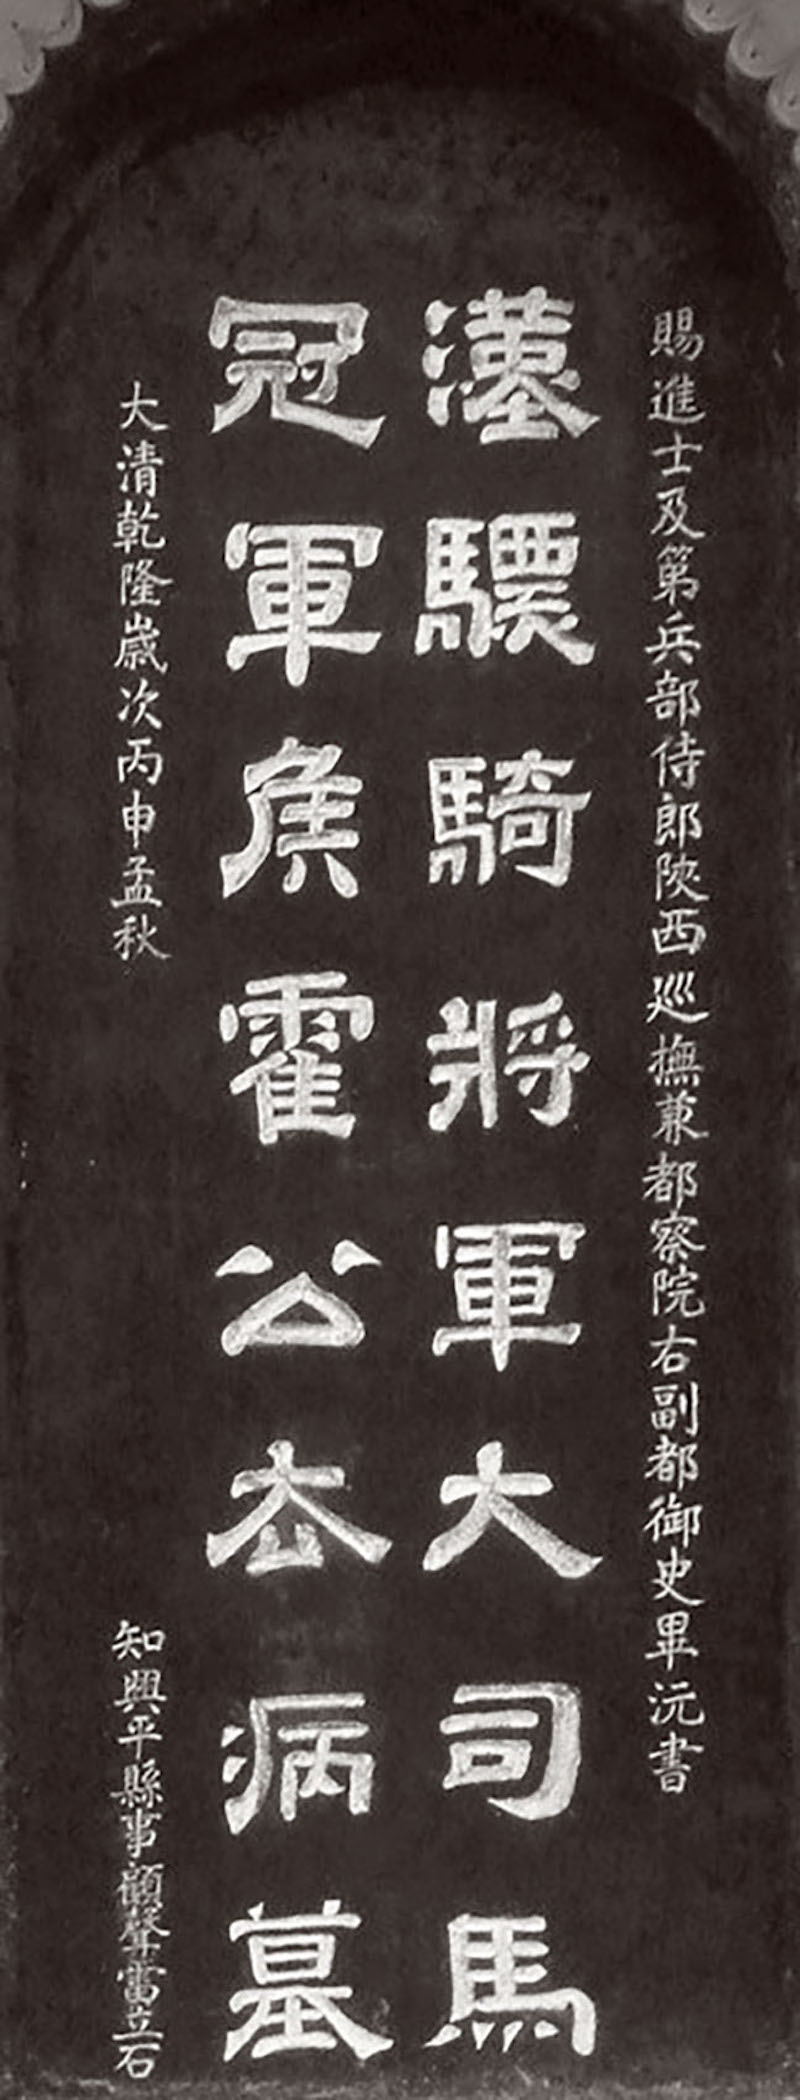 賜進士及第兵部侍郎陝西巡撫兼都察院右副都御史畢沅書
漢驃騎將軍大司馬
冠軍侯霍公去病墓
大清乾隆歲次丙申孟秋
知興平縣事顧聲雷立石